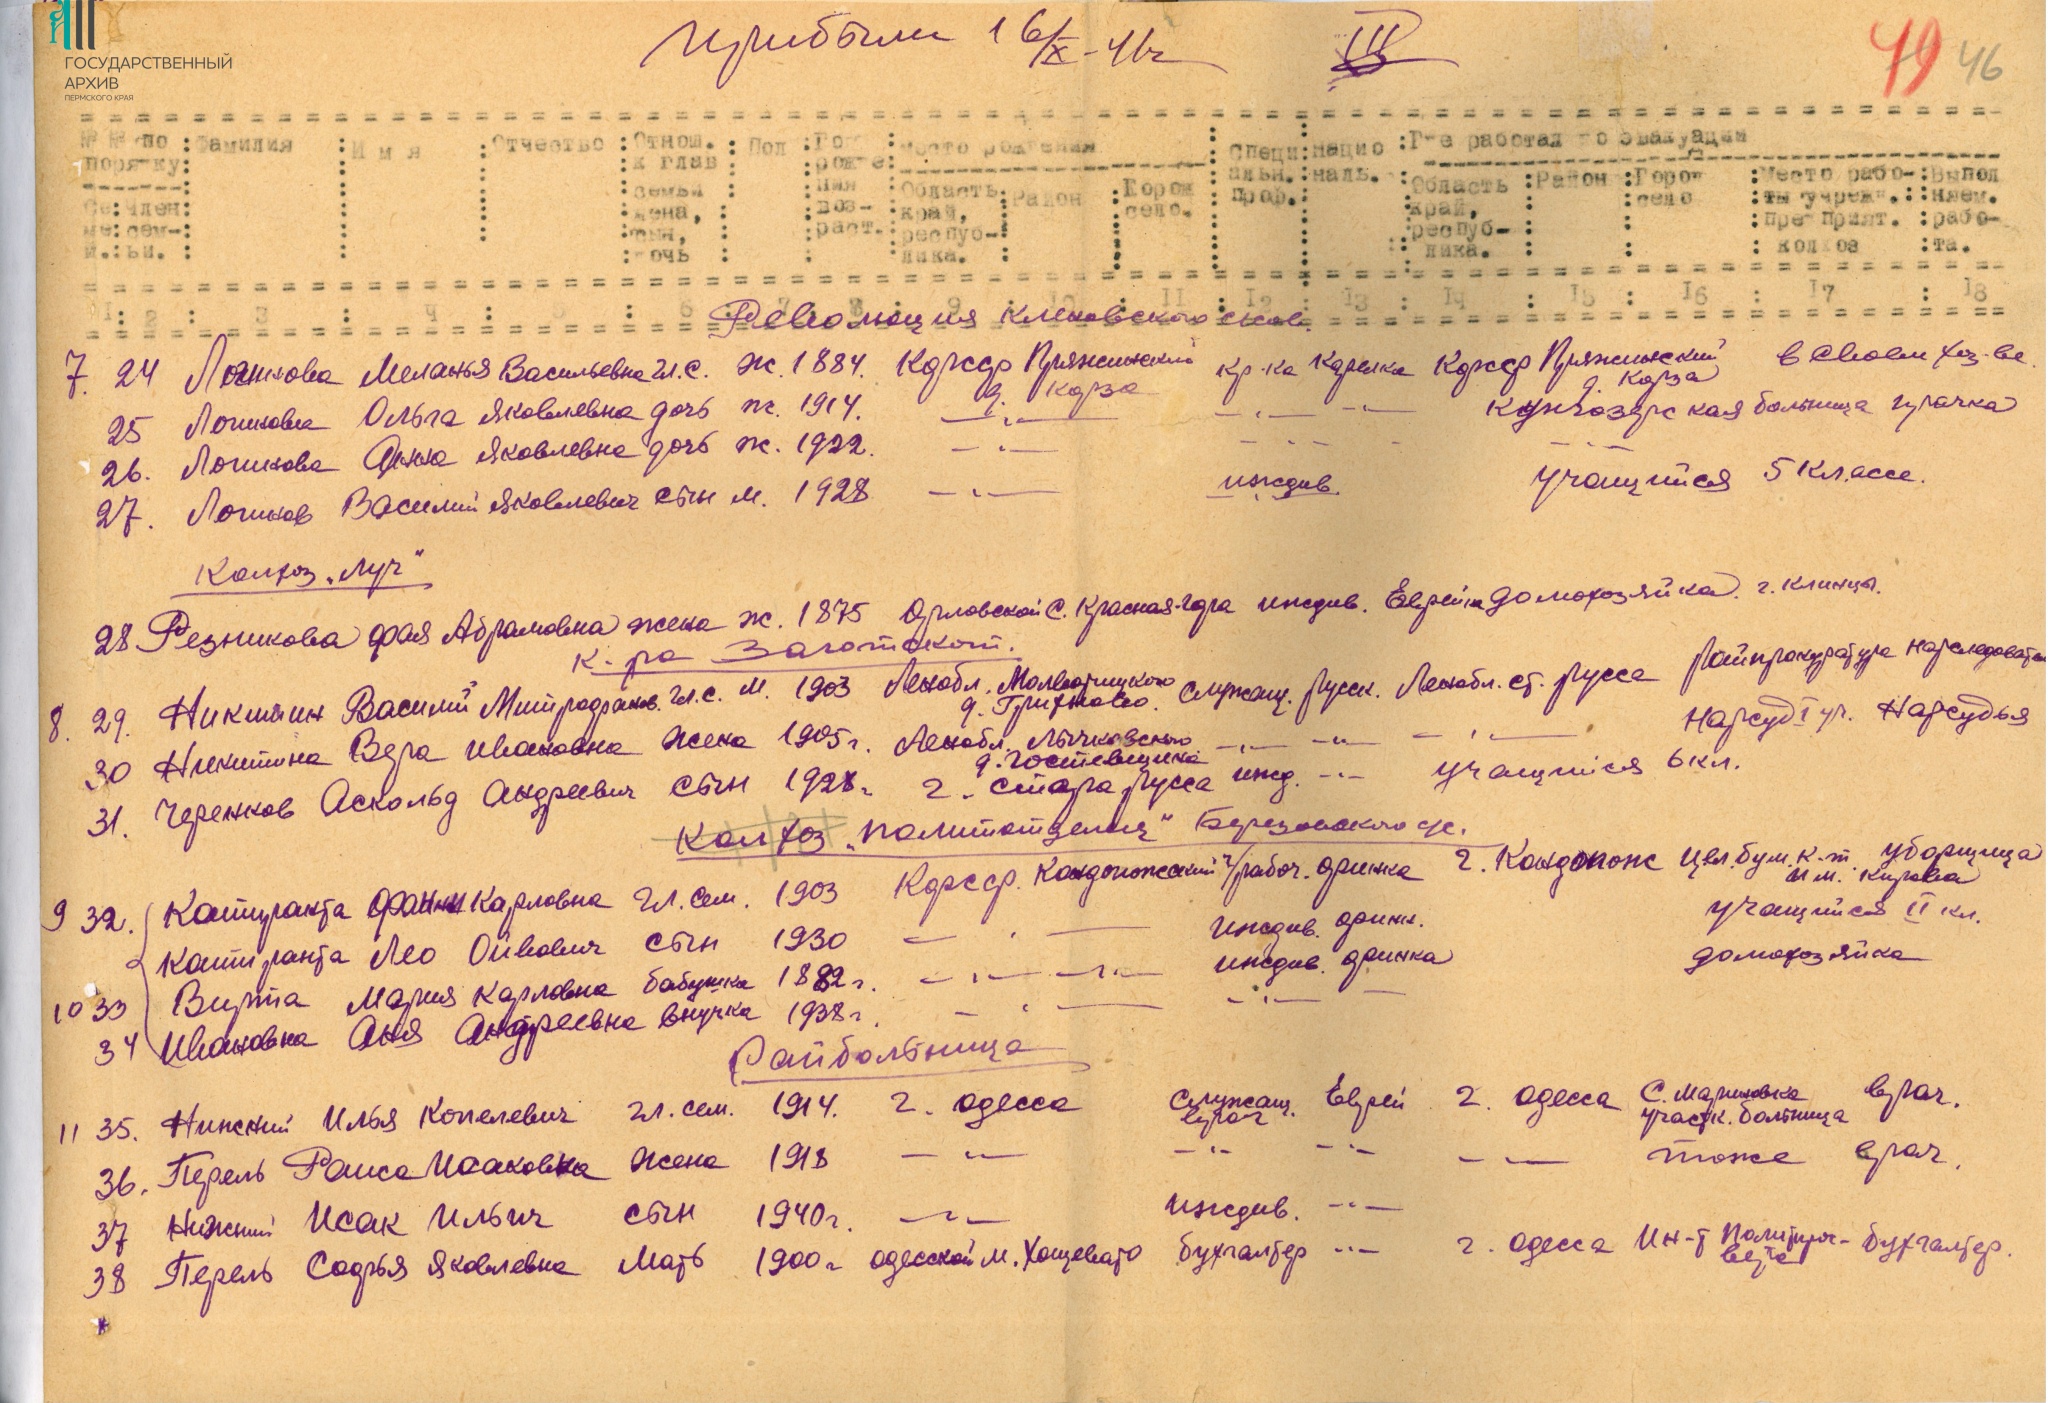 ГОСУДАРСТВЕННЫЙ
АРХИВ
ПЕРМСКОГО КРАЯ
Прибыли 16/X-41г III 49 46
№№ по порядку Семе и. Член сем-ьи. Фамилия Имя Отчество Отнош. к глав семьи жена, сын, дочь Пол Год рожде ния воз-раст. Место рождения Область край, респуб-лика. Район Город село. Специ альн. проф. Нацио наль. Где работал до эвакуации Область край, респуб-лика. Район Город село Место рабо-ты учреж. предприят. колхоз Выпол няем. рабо-та.
1 2 3 4 5 6 7 8 9 10 11 12 13 14 15 16 17 18
Революция Кленовского с/сов.
7. 24 Логинова Меланья Васильевна гл.с. ж. 1884. Кфсср Пряжинский д. Корза кр-ка Карелка Кфсср Пряжинский д. Корза в своем хоз-ве.
25 Логинова Ольга Яковлевна дочь ж. 1914. —"— —"— —"— больница прачка
26. Логинова Анна Яковлевна дочь ж. 1922. —"— —"— —"—
27. Логинов Василий Яковлевич сын м. 1928 —"— иждив. учащийся 5 классе.
Колхоз „Луч"
28 Резникова Фая Абрамовна жена ж. 1875 Орловской с. Красная-Гора иждив. Еврейка домохозяйка. г. Клинцы.
К-ра Заготскот.
8. 29. Никитин Василий Митрофанов. гл.с. м. 1903 Ленобл. Молвотицкого д. служащ. Русск. Ленобл. ст. Русса Райпрокуратура Нарследователь
30 Никитина Вера Ивановна жена 1905г. Ленобл. Лычковского д. Гостевщина —"— —"— —"— Нарсуд I уч. Нарсудья
31. Черенков Аскольд Андреевич сын 1928г. г. Стара Русса ижд. —"— учащийся 6 кл.
Колхоз „Политотделец" Березовского с/с.
9 32. Карловна гл. сем. 1903 Кфсср. Кондопожский ч/рабоч. финка г. Кондопож Цел. бум. к-т. им. Кирова уборщица
Лео Ойвович сын 1930 —"— иждив. финн. учащийся II кл.
10 33 Вирта Мария Карловна бабушка 1882г. —"— —"— иждив. финка домохозяйка
34 Ивановна Аня Андреевна внучка 1938г. —"— —"— —
Райбольница
11 35. Нижний Илья Копелевич гл. сем. 1914. г. Одесса служащ. врач Еврей г. Одесса С. Мариновка участк. больница врач.
36. Перель Раиса Исаковна жена 1918 —"— —"— —"— —"— тоже врач.
37 Нижний Исак Ильич сын 1940г. —"— иждив. —"—
38 Перель Софья Яковлевна Мать 1900г Одесской м. Хощевато бухгалтер —"— г. Одесса Ин-т бухгалтер.